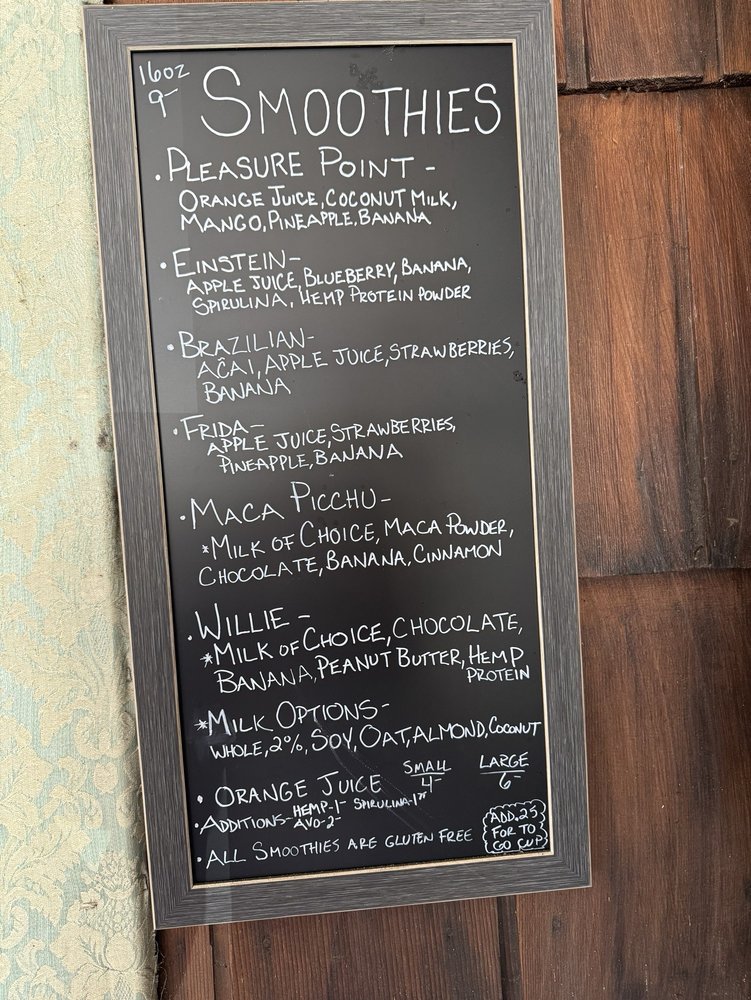 16oz
9-
SMOOTHIES
• PLEASURE POINT -
ORANGE JUICE, COCONUT MILK,
MANGO, PINEAPPLE, BANANA
• EINSTEIN-
APPLE JUICE, BLUEBERRY, BANANA,
SPIRULINA, HEMP PROTEIN POWDER
• BRAZILIAN-
AÇAI, APPLE JUICE, STRAWBERRIES,
BANANA
• FRIDA-
APPLE JUICE, STRAWBERRIES,
PINEAPPLE, BANANA
• MACA PICCHU-
*MILK OF CHOICE, MACA POWDER,
CHOCOLATE, BANANA, CINNAMON
• WILLIE -
*MILK OF CHOICE, CHOCOLATE,
BANANA, PEANUT BUTTER, HEMP
PROTEIN
*MILK OPTIONS-
WHOLE, 2%, SOY, OAT, ALMOND, COCONUT
• ORANGE JUICE SMALL 4- LARGE 6-
• ADDITIONS- HEMP-1- SPIRULINA-1
AVO-2-
• ALL SMOOTHIES ARE GLUTEN FREE
ADD .25
FOR TO
GO CUP